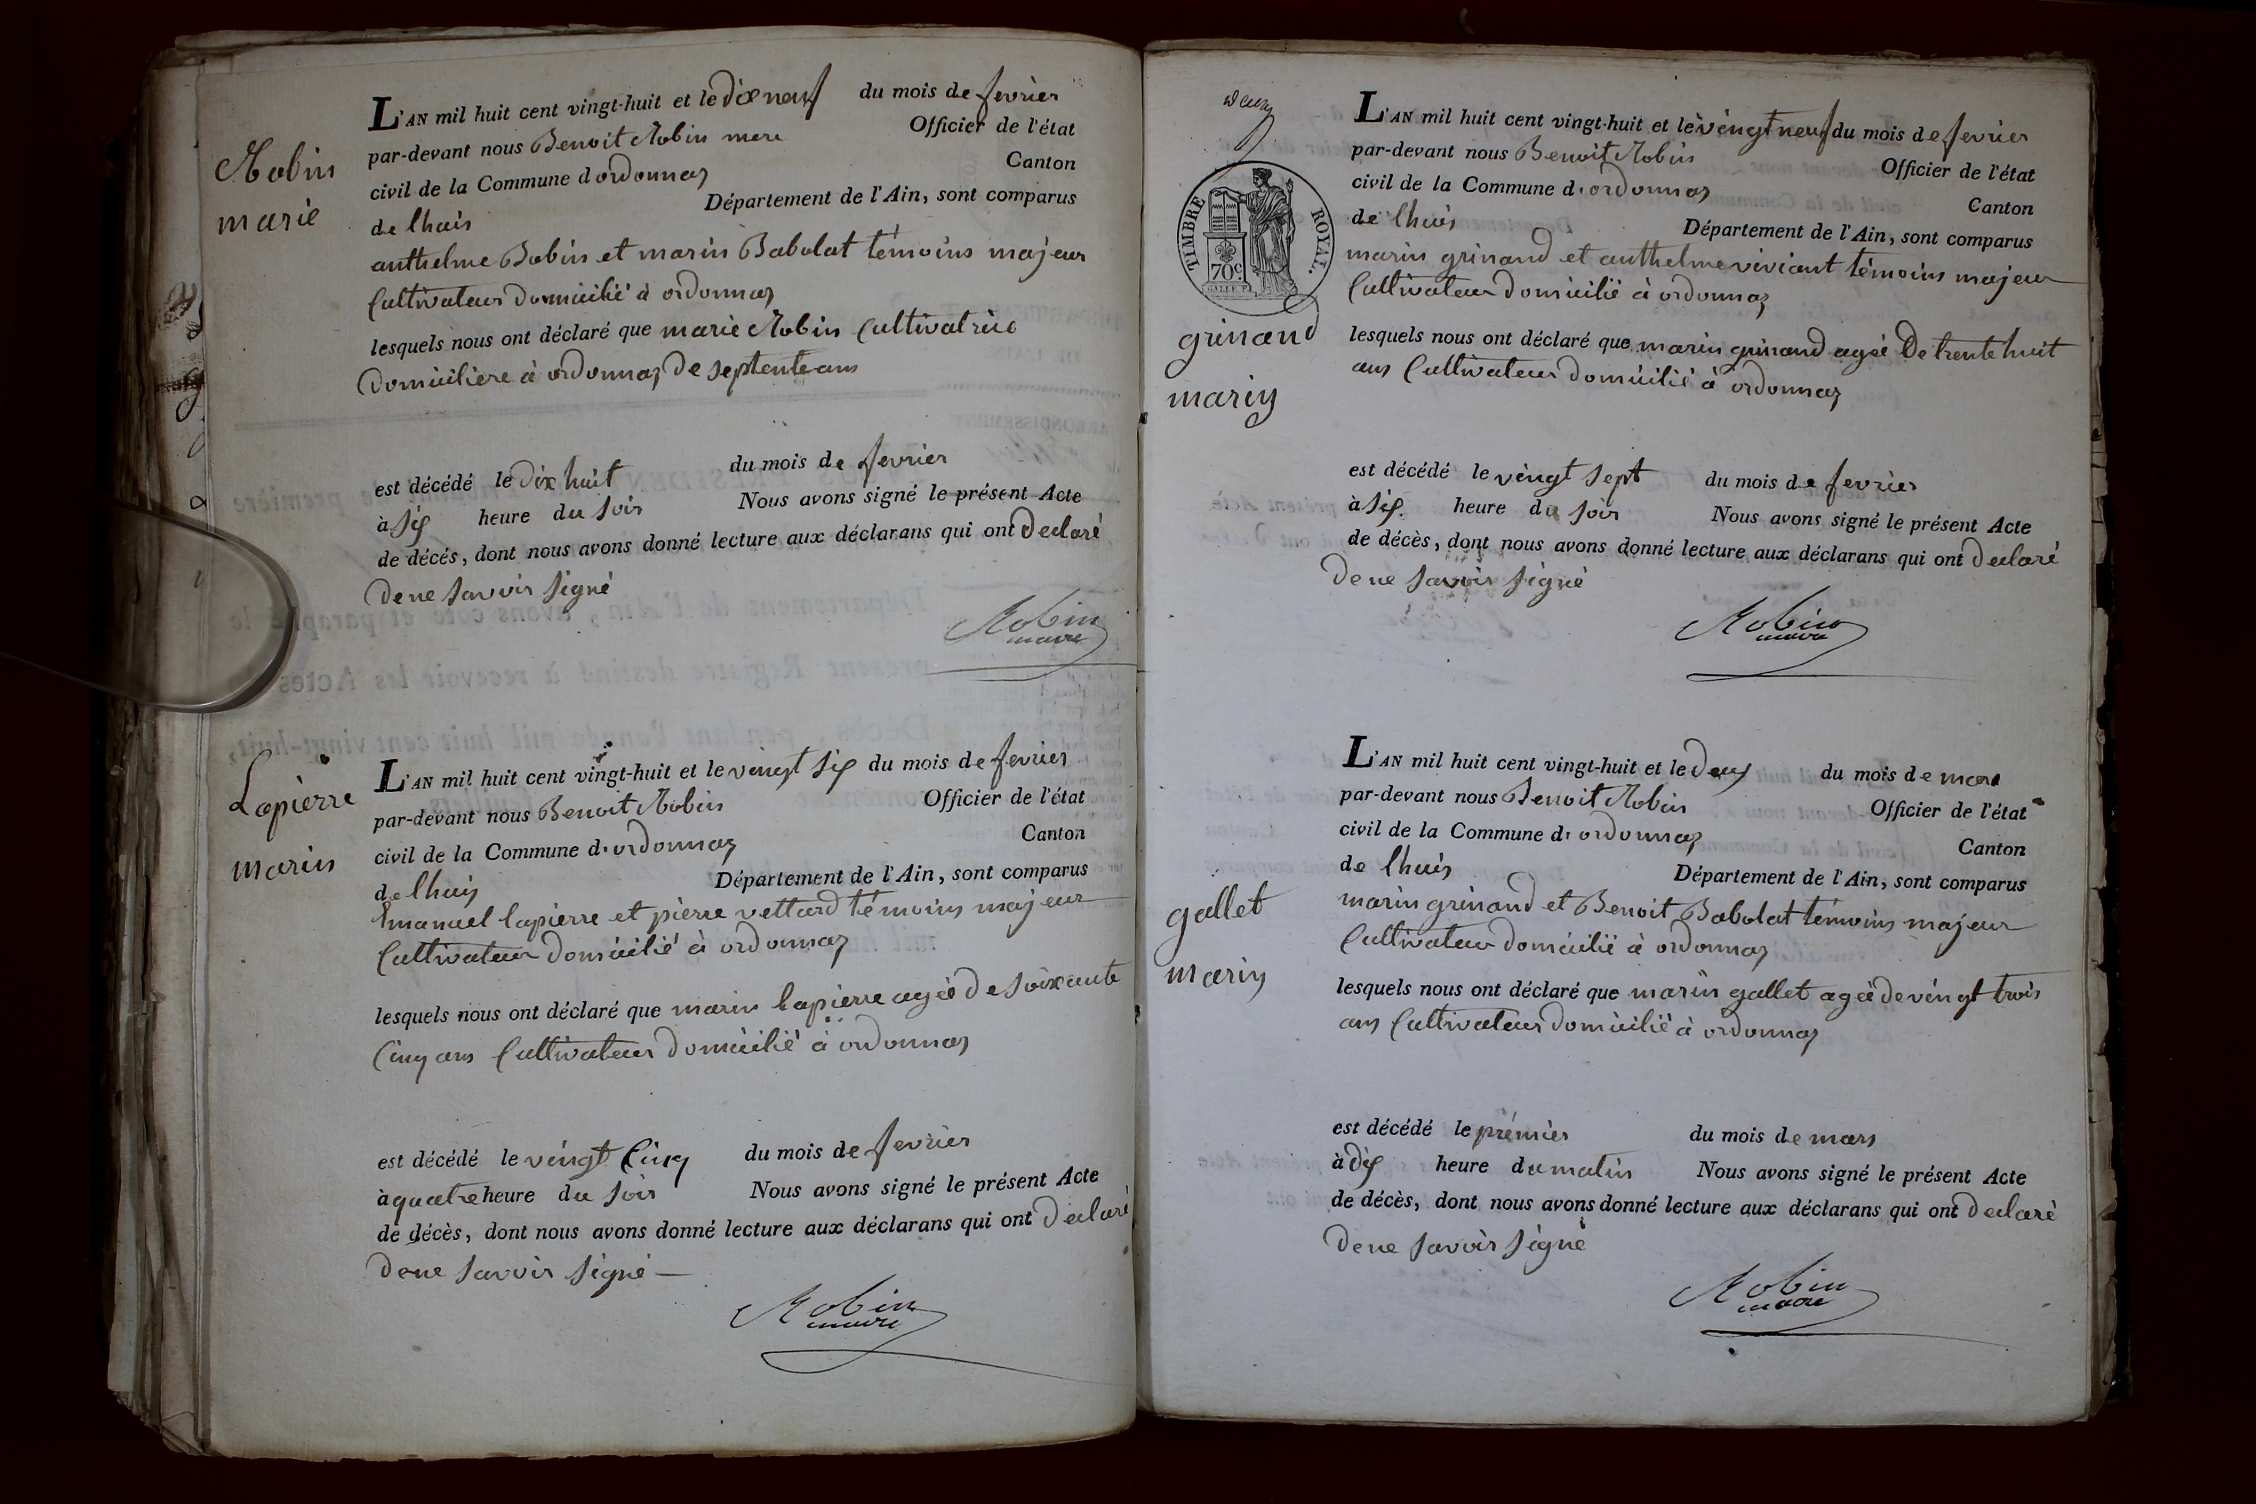 Robin
marie
L'AN mil huit cent vingt-huit et le dix neuf du mois de fevrier
par-devant nous Benoit Robin mere Officier de l'état
civil de la Commune d ordonnaz Canton
de lhuis Département de l'Ain, sont comparus
anthelme Bobin et marin Babolat témoins majeur
Cultivateur domicilié à ordonnaz
lesquels nous ont déclaré que marie Robin Cultivatrice
domiciliere à ordonnaz de septente ans
est décédé le dix huit du mois de fevrier
à six heure du soir Nous avons signé le présent Acte
de décés, dont nous avons donné lecture aux déclarans qui ont declaré
de ne savoir signé
Robin
maire
Lapierre
marin
L'AN mil huit cent vingt-huit et le vingt six du mois de fevrier
par-devant nous Benoit Robin Officier de l'état
civil de la Commune d. ordonnaz Canton
de lhuis Département de l'Ain, sont comparus
Emanuel lapierre et pierre vettard témoins majeur
Cultivateur domicilié à ordonnaz
lesquels nous ont déclaré que marin lapierre agée de soixante
Cinq ans Cultivateur domicilié à ordonnaz
est décédé le vingt Cinq du mois de fevrier
à quatre heure du soir Nous avons signé le présent Acte
de décès, dont nous avons donné lecture aux déclarans qui ont declaré
de ne savoir signé
Robin
maire
deux
TIMBRE ROYAL.
70c.
grinand
marin
L'AN mil huit cent vingt-huit et le vingt neuf du mois de fevrier
par-devant nous Benoit Robin Officier de l'état
civil de la Commune d. ordonnaz Canton
de lhuis Département de l'Ain, sont comparus
marin grinand et anthelme viviant témoins majeur
Cultivateur domicilié à ordonnaz
lesquels nous ont déclaré que marin grinand agée de trente huit
ans Cultivateur domicilié à ordonnaz
est décédé le vingt sept du mois de fevrier
à six. heure du soir Nous avons signé le présent Acte
de décès, dont nous avons donné lecture aux déclarans qui ont declaré
de ne savoir signé
Robin
maire
gallet
marin
L'AN mil huit cent vingt-huit et le deux du mois de mars
par-devant nous Benoit Robin Officier de l'état
civil de la Commune d. ordonnaz Canton
de lhuis Département de l'Ain, sont comparus
marin grinand et Benoit Babolat témoins majeur
Cultivateur domicilié à ordonnaz
lesquels nous ont déclaré que marin gallet agée de vingt trois
ans Cultivateur domicilié à ordonnaz
est décédé le prémier du mois de mars
à dix heure du matin Nous avons signé le présent Acte
de décès, dont nous avons donné lecture aux déclarans qui ont declaré
de ne savoir signé
Robin
maire